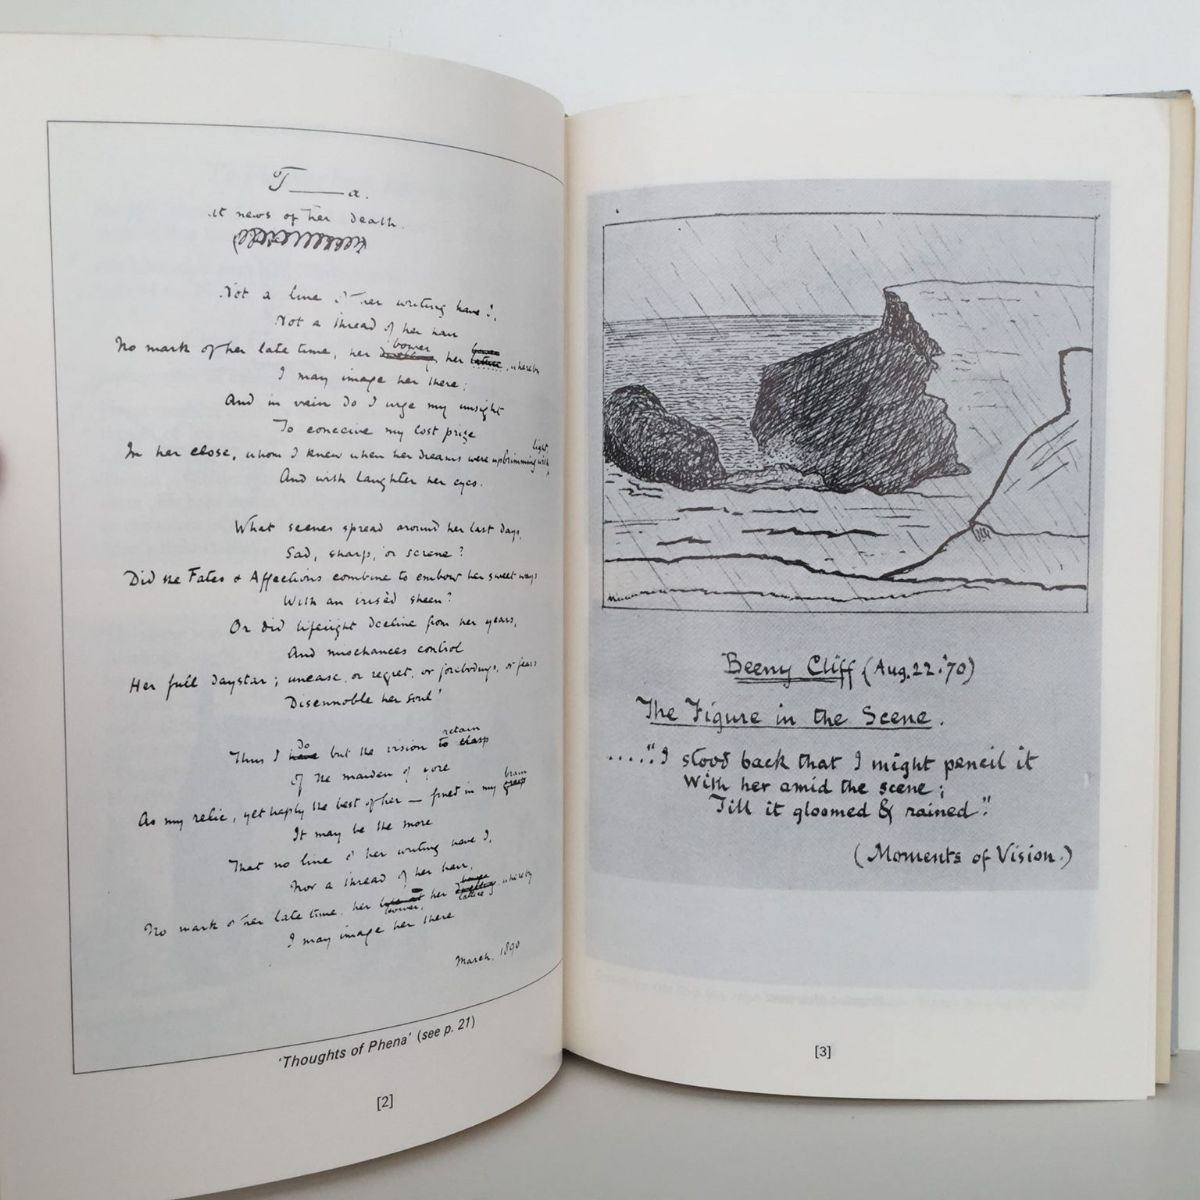 T——a.
At news of her death.
Not a line of her writing have I,
Not a thread of her hair
No mark of her late time, her dwelling bower, her bower lattice, whereby
I may image her there;
And in vain do I urge my unsight
To conceive my lost prize
In her close, whom I knew when her dreams were upbrimming with light,
And with laughter her eyes.
What scenes spread around her last days,
Sad, sharp, or serene?
Did the Fates & Affections combine to embow her sweet ways
With an irisèd sheen?
Or did lifelight decline from her years,
And mischances control
Her full daystar; unease, or regret, or forebodings, or fears
Disennoble her soul?
Thus I have do but the vision to clasp retain
Of the maiden of yore
As my relic, yet haply the best of her — finet in my brain
It may be the more
That no line of her writing have I,
Nor a thread of her hair,
No mark of her late time, her bower, her dwelling lattice, whereby
I may image her there
March. 1890
'Thoughts of Phena' (see p. 21)
[2]
Beeny Cliff (Aug. 22. '70)
The Figure in the Scene.
....."I stood back that I might pencil it
With her amid the scene;
Till it gloomed & rained"
(Moments of Vision.)
[3]